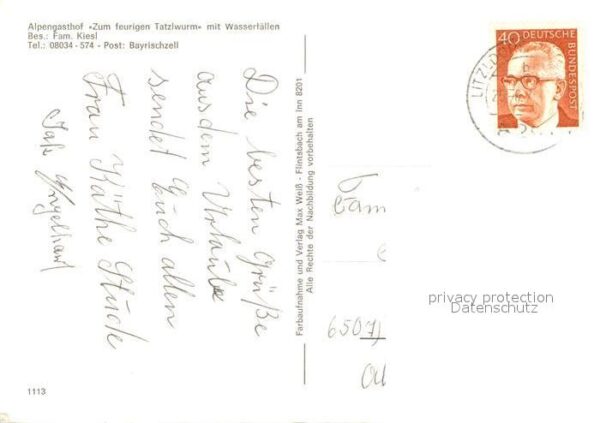 Alpengasthof «Zum feurigen Tatzlwurm» mit Wasserfällen
Bes.: Fam. Kiesl
Tel.: 08034 - 574 - Post: Bayrischzell
Die besten Grüße
aus dem Urlaub
sendet Euch allen
Frau Käthe Stück
Farbaufnahme und Verlag Max Weiß - Flintsbach am Inn 8201
Alle Rechte der Nachbildung vorbehalten
40 DEUTSCHE
BUNDESPOST
Fam
privacy protection
Datenschutz
6507
1113